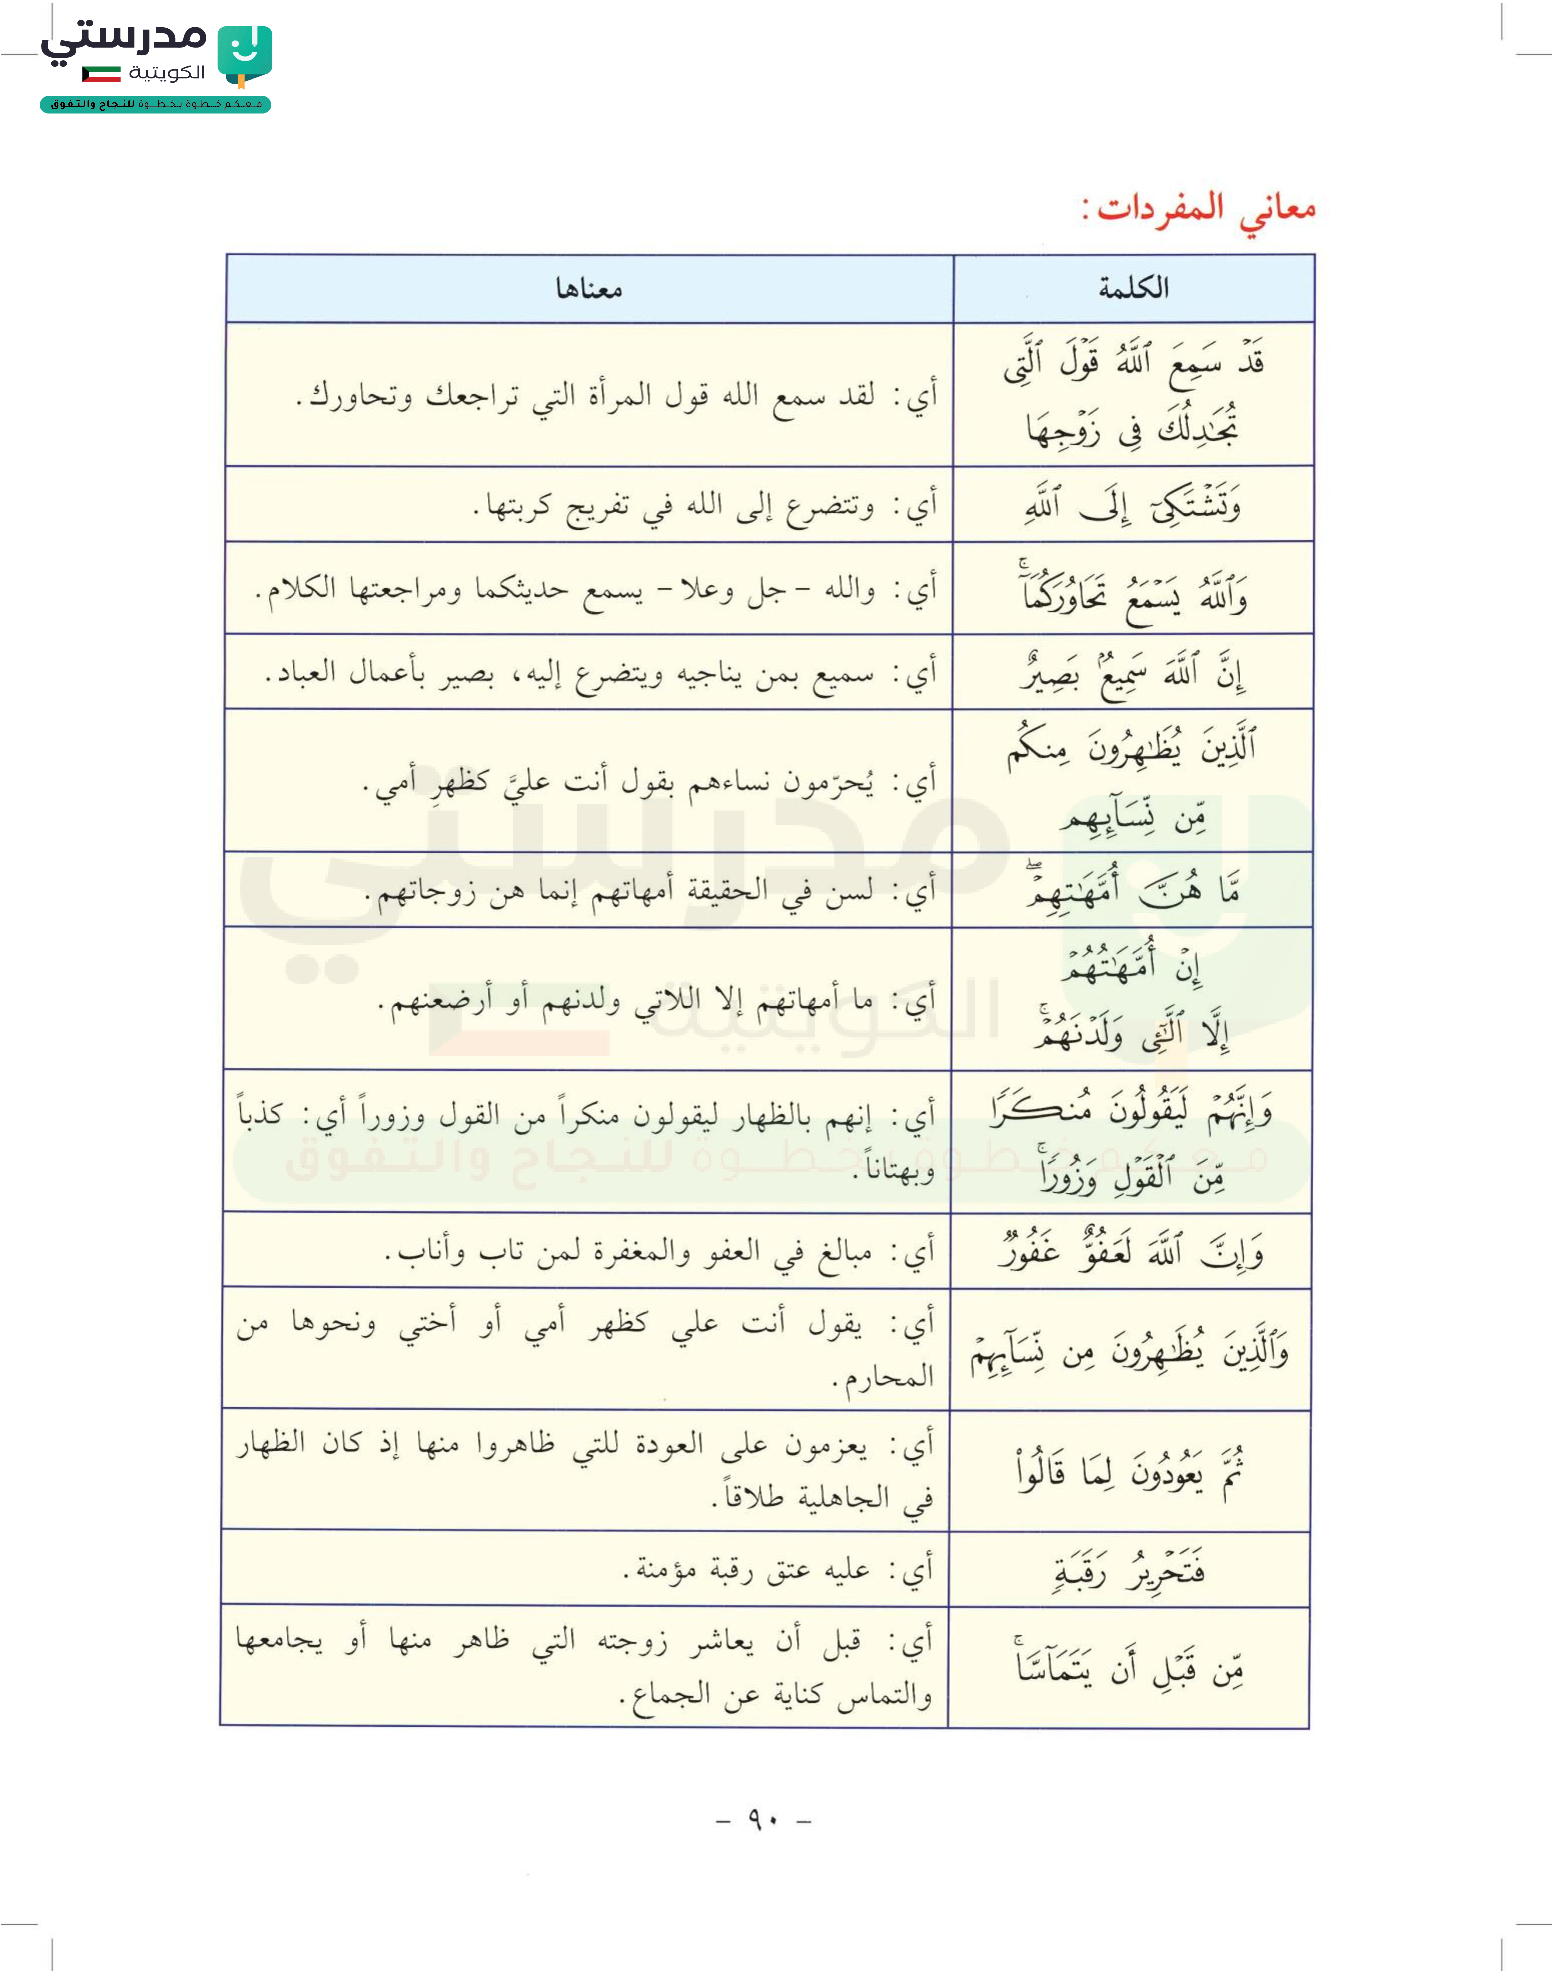 مدرستي
الكويتية
معكم خطوة بخطوة للنجاح والتفوق
معاني المفردات:
الكلمة
معناها
قَدْ سَمِعَ ٱللَّهُ قَوْلَ ٱلَّتِى
تُجَٰدِلُكَ فِى زَوْجِهَا
أي: لقد سمع الله قول المرأة التي تراجعك وتحاورك.
وَتَشْتَكِىٓ إِلَى ٱللَّهِ
أي: وتتضرع إلى الله في تفريج كربتها.
وَٱللَّهُ يَسْمَعُ تَحَاوُرَكُمَآ ۚ
أي: والله - جل وعلا - يسمع حديثكما ومراجعتها الكلام.
إِنَّ ٱللَّهَ سَمِيعٌۢ بَصِيرٌ
أي: سميع بمن يناجيه ويتضرع إليه، بصير بأعمال العباد.
ٱلَّذِينَ يُظَٰهِرُونَ مِنكُم
مِّن نِّسَآئِهِم
أي: يُحرّمون نساءهم بقول أنت عليَّ كظهرِ أمي.
مَّا هُنَّ أُمَّهَٰتِهِمْ ۖ
أي: لسن في الحقيقة أمهاتهم إنما هن زوجاتهم.
إِنْ أُمَّهَٰتُهُمْ
إِلَّا ٱلَّٰٓـِٔى وَلَدْنَهُمْ ۚ
أي: ما أمهاتهم إلا اللاتي ولدنهم أو أرضعنهم.
وَإِنَّهُمْ لَيَقُولُونَ مُنكَرًا
مِّنَ ٱلْقَوْلِ وَزُورًا ۚ
أي: إنهم بالظهار ليقولون منكراً من القول وزوراً أي: كذباً
وبهتاناً.
وَإِنَّ ٱللَّهَ لَعَفُوٌّ غَفُورٌ
أي: مبالغ في العفو والمغفرة لمن تاب وأناب.
وَٱلَّذِينَ يُظَٰهِرُونَ مِن نِّسَآئِهِمْ
أي: يقول أنت علي كظهر أمي أو أختي ونحوها من
المحارم.
ثُمَّ يَعُودُونَ لِمَا قَالُوا۟
أي: يعزمون على العودة للتي ظاهروا منها إذ كان الظهار
في الجاهلية طلاقاً.
فَتَحْرِيرُ رَقَبَةٍ
أي: عليه عتق رقبة مؤمنة.
مِّن قَبْلِ أَن يَتَمَآسَّا ۚ
أي: قبل أن يعاشر زوجته التي ظاهر منها أو يجامعها
والتماس كناية عن الجماع.
- ٩٠ -